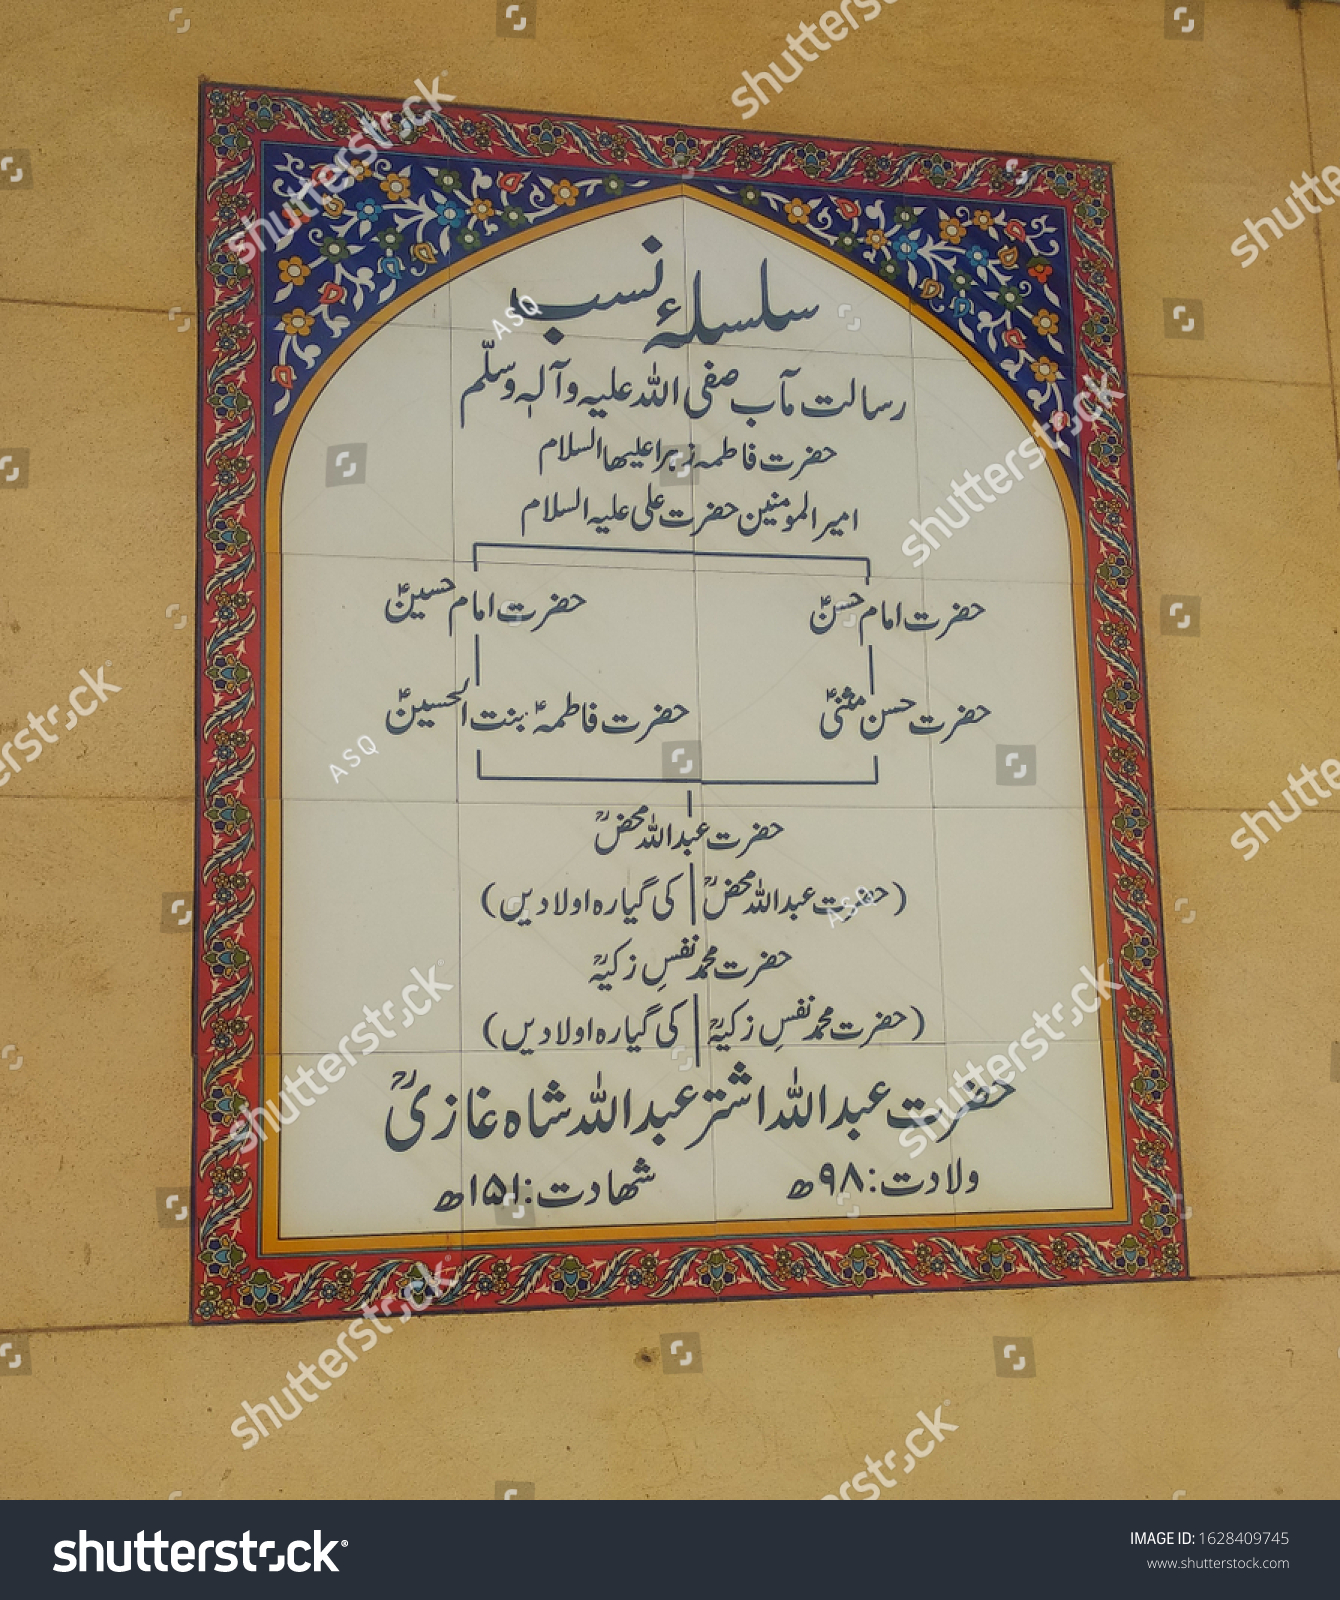 سلسلۂ نسب
رسالت مآب صفی اللہ علیہ وآلہٖ وسلّم
حضرت فاطمہ زہرا علیھا السلام
امیر المومنین حضرت علی علیہ السلام
حضرت امام حسنؑ حضرت امام حسینؑ
حضرت حسن مثنیٰؑ حضرت فاطمہؑ بنت الحسینؑ
حضرت عبداللہ محضؒ
(حضرت عبداللہ محضؒ کی گیارہ اولادیں)
حضرت محمد نفسِ زکیہؒ
(حضرت محمد نفسِ زکیہؒ کی گیارہ اولادیں)
حضرت عبداللہ اشتر عبداللہ شاہ غازیؒ
ولادت:۹۸ھ شھادت:۱۵۱ھ
ASQ
ASQ
ASQ
shutterstock
IMAGE ID: 1628409745
www.shutterstock.com